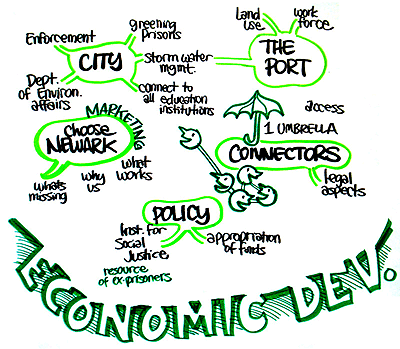 Enforcement
greening
prisons
CITY
Storm water
mgmt.
Dept.
of Environ.
affairs
connect to
all education
institutions
Land
use
work
force
THE
PORT
MARKETING
Choose
NEWARK
whats
missing
why
us
what
works
access
1 UMBRELLA
CONNECTORS
legal
aspects
POLICY
Inst. for
Social
Justice
resource
of ex-prisoners
appropriation
of funds
ECONOMIC DEV.